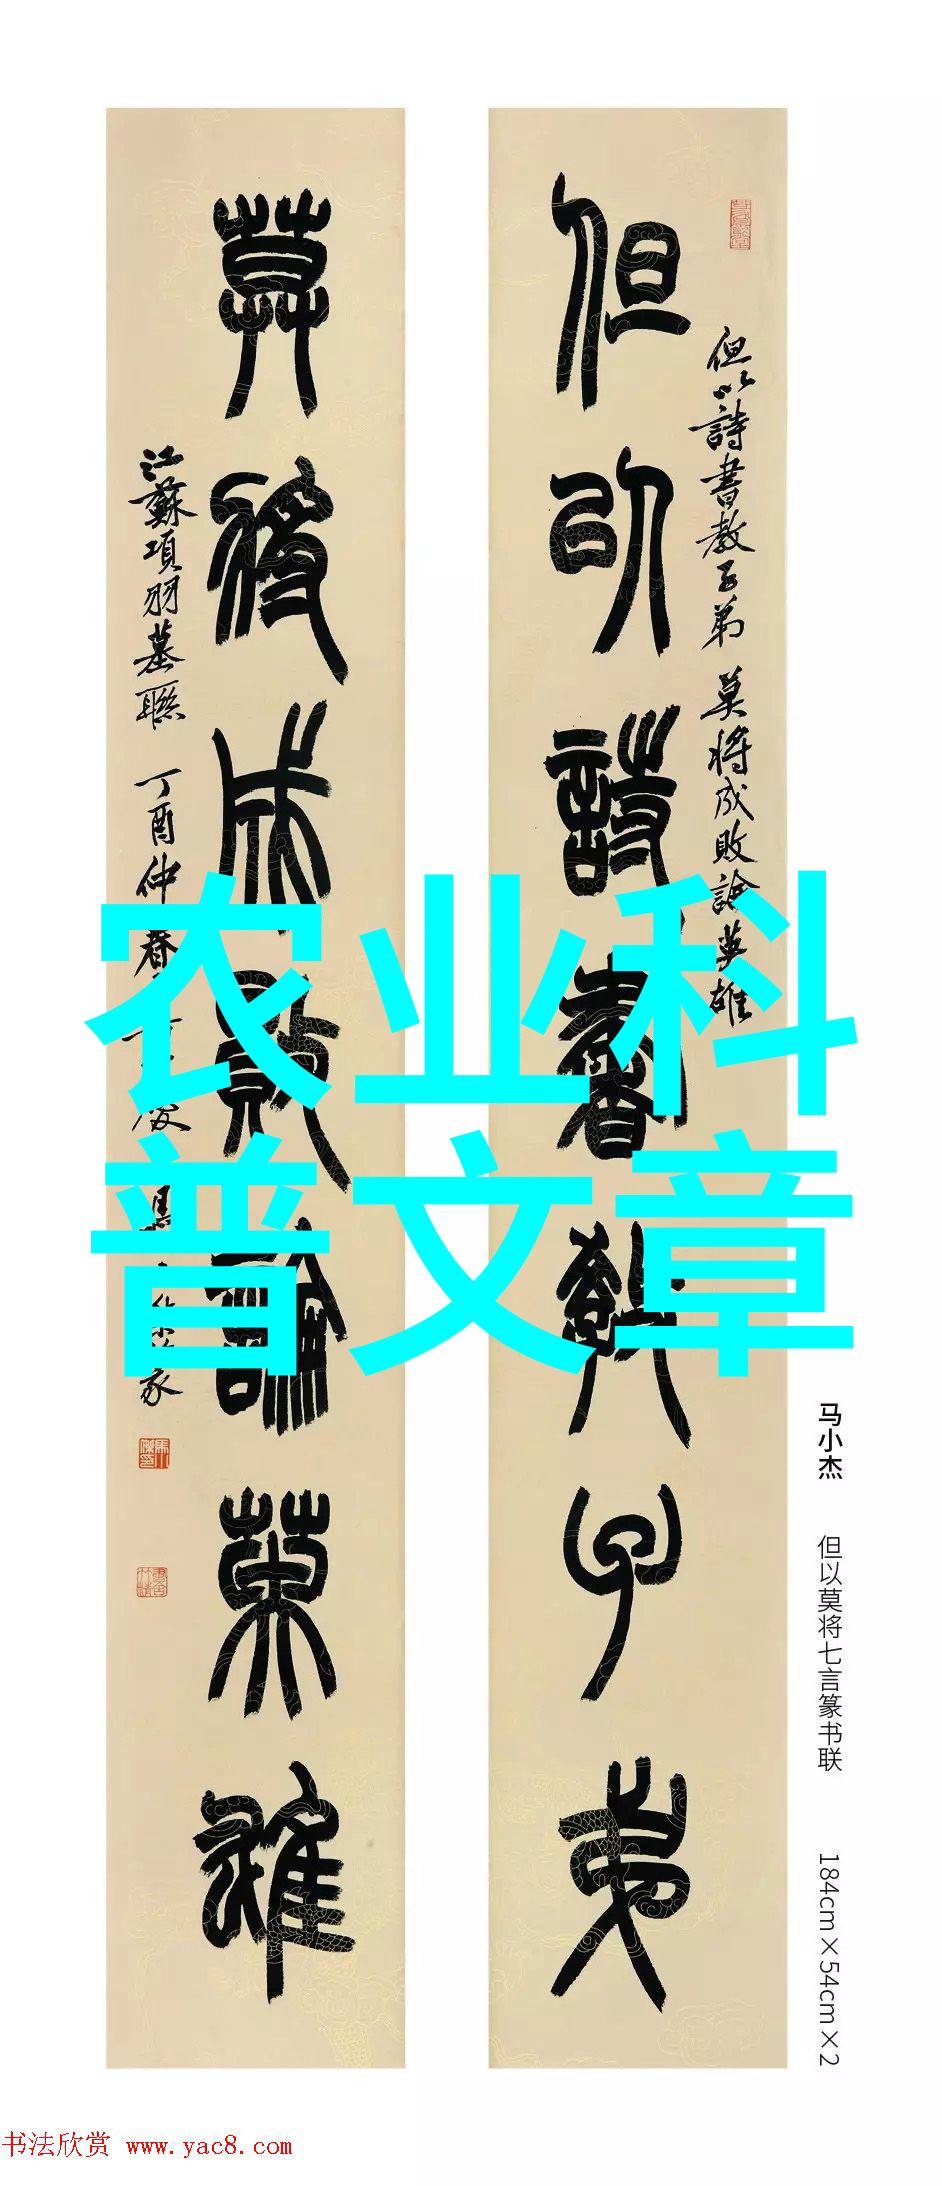 但以詩書教子弟
但以詩書教子弟 莫將成敗論英雄
莫將成敗論英雄
江蘇項羽墓聯 丁酉仲春
农业科
普文章
马小杰 但以莫将七言篆书联 184cm×54cm×2
书法欣赏 www.yac8.com